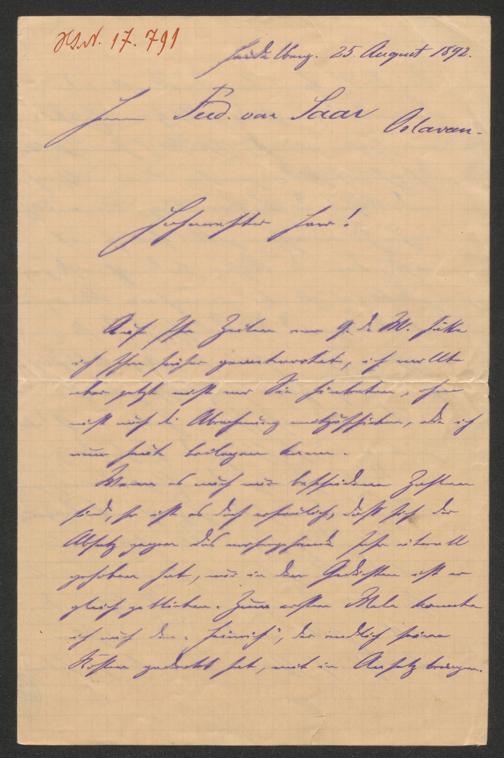 H.I.N. 17.791
Heidelberg. 25 August 1892.
Herrn Ferd. von Saar
Oslavan.
Hochverehrter Herr!
Auf Ihre Zeilen vom 9. d. M. hätte
ich Ihnen früher geantwortet, ich wollte
aber jetzt nicht vor Sie hintreten, ohne
nicht auch die Abrechnung mitzuschicken, die ich
nun heute beilegen kann.
Wenn es auch nur bescheidene Zahlen
sind, so ist es doch erfreulich, dass sich der
Absatz gegen das vorhergehende Jahr überall
gehoben hat, nur in den Gedichten ist er
gleich geblieben. Zum ersten Male konnte
ich auch den "Heinrich", der endlich seine
Kosten gedeckt hat, mit in Ansatz bringen.